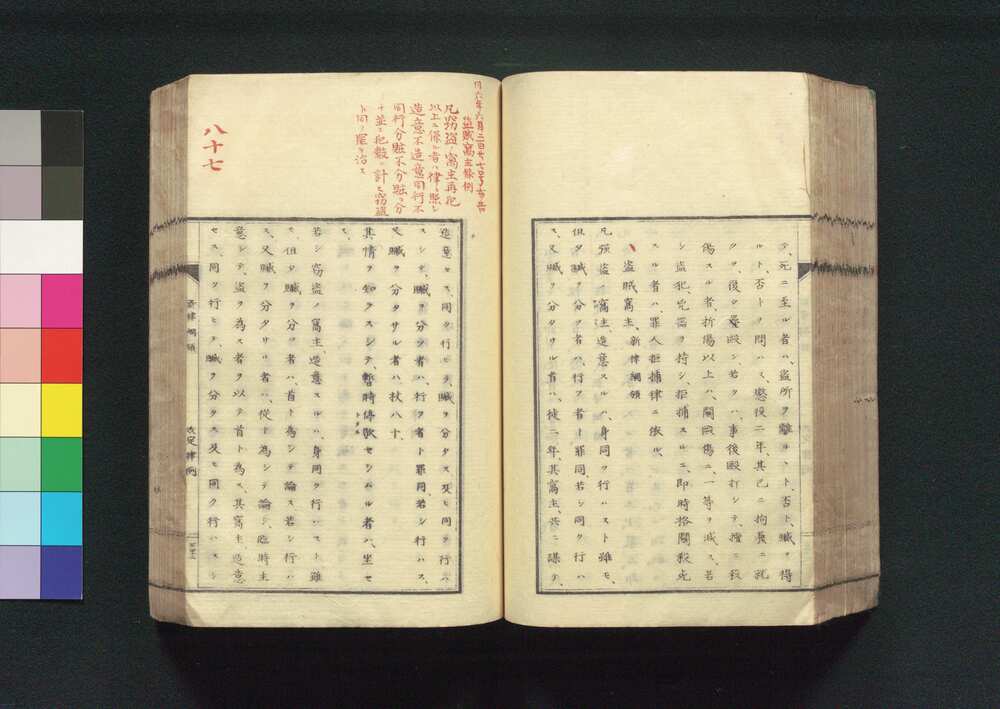 テ、死ニ至ル者ハ、盗所ヲ離ルヽト、否ト、贓ヲ得
ルト、否トヲ問ハス、懲役二年、其已ニ拘裹ニ就
クノ、後夕疊毆シ若クハ、事後毆打シテ、擅ニ殺
傷スル者、折傷以上ハ、鬬毆傷ニ、一等ヲ減ス、若
シ盗犯、兇器ヲ持シ、拒捕スルニ、即時格鬬殺死
スル者ハ、罪人拒捕律ニ依ル、
盗賊窩主、新律綱領
凡强盗ノ窩主、造意スルハ、身同ク行ハスト雖モ、
但夕贓ヲ分ツ者ハ、行フ者ト罪同若シ同ク行ハ
ス、又贓ヲ分タサル者ハ、徒二年、其窩主、共ニ謀テ、
同六年六月二日
盗賊窩主條例
凡窃盗ノ窩主再犯
以上ニ係ル者ハ律ニ照シ
造意不造意同行不
同行分贓不分贓ヲ分
タ並ニ犯數ヲ計ヘ窃盗
ト同ク罪ヲ治ス
八十七
造意セス、同ク行ヒテ、贓ヲ分タス、及ヒ同ク行ハ
スシテ、贓ヲ分ツ者ハ、行フ者ト罪同、若シ行ハス、
又贓ヲ分タサル者ハ、杖八十、
其情ヲ知ラスシテ、暫時停歇セシムル者ハ、坐セ
ス、
若シ窃盗ノ窩主、造意スルハ、身同ク行ハスト雖
モ、但夕贓ヲ分ツ者ハ、首ト為シテ論ス、若シ行ハ
ス、又贓ヲ分タサル者ハ、從ト為シテ論シ、臨時主
意シテ、盗ヲ為ス者ヲ以テ首ト為ス、其窩主、造意
セス、同ク行ヒテ、贓ヲ分タス、及ヒ同ク行ハスシ
新律綱領
改定律例